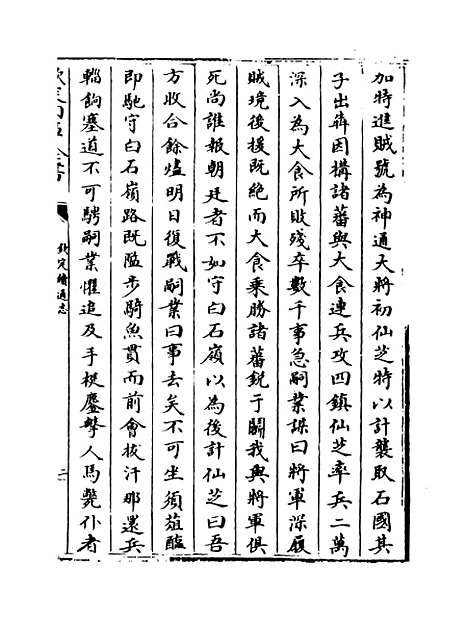 加特進賊號為神通大將初仙芝特以計襲取石國其
子出奔因搆諸蕃與大食連兵攻四鎮仙芝率兵二萬
深入為大食所敗殘卒數千事急嗣業謀曰將軍深履
賊境後援既絶而大食乘勝諸蕃銳于鬭我與將軍俱
死尚誰報朝廷者不如守白石嶺以為後計仙芝曰吾
方收合餘燼明日復戰嗣業曰事去矣不可坐須葅醢
即馳守白石嶺路既隘步騎魚貫而前會拔汗那還兵
輜餉塞道不可騁嗣業懼追及手梃鏖擊人馬斃仆者
欽定四庫全書
欽定續通志
二